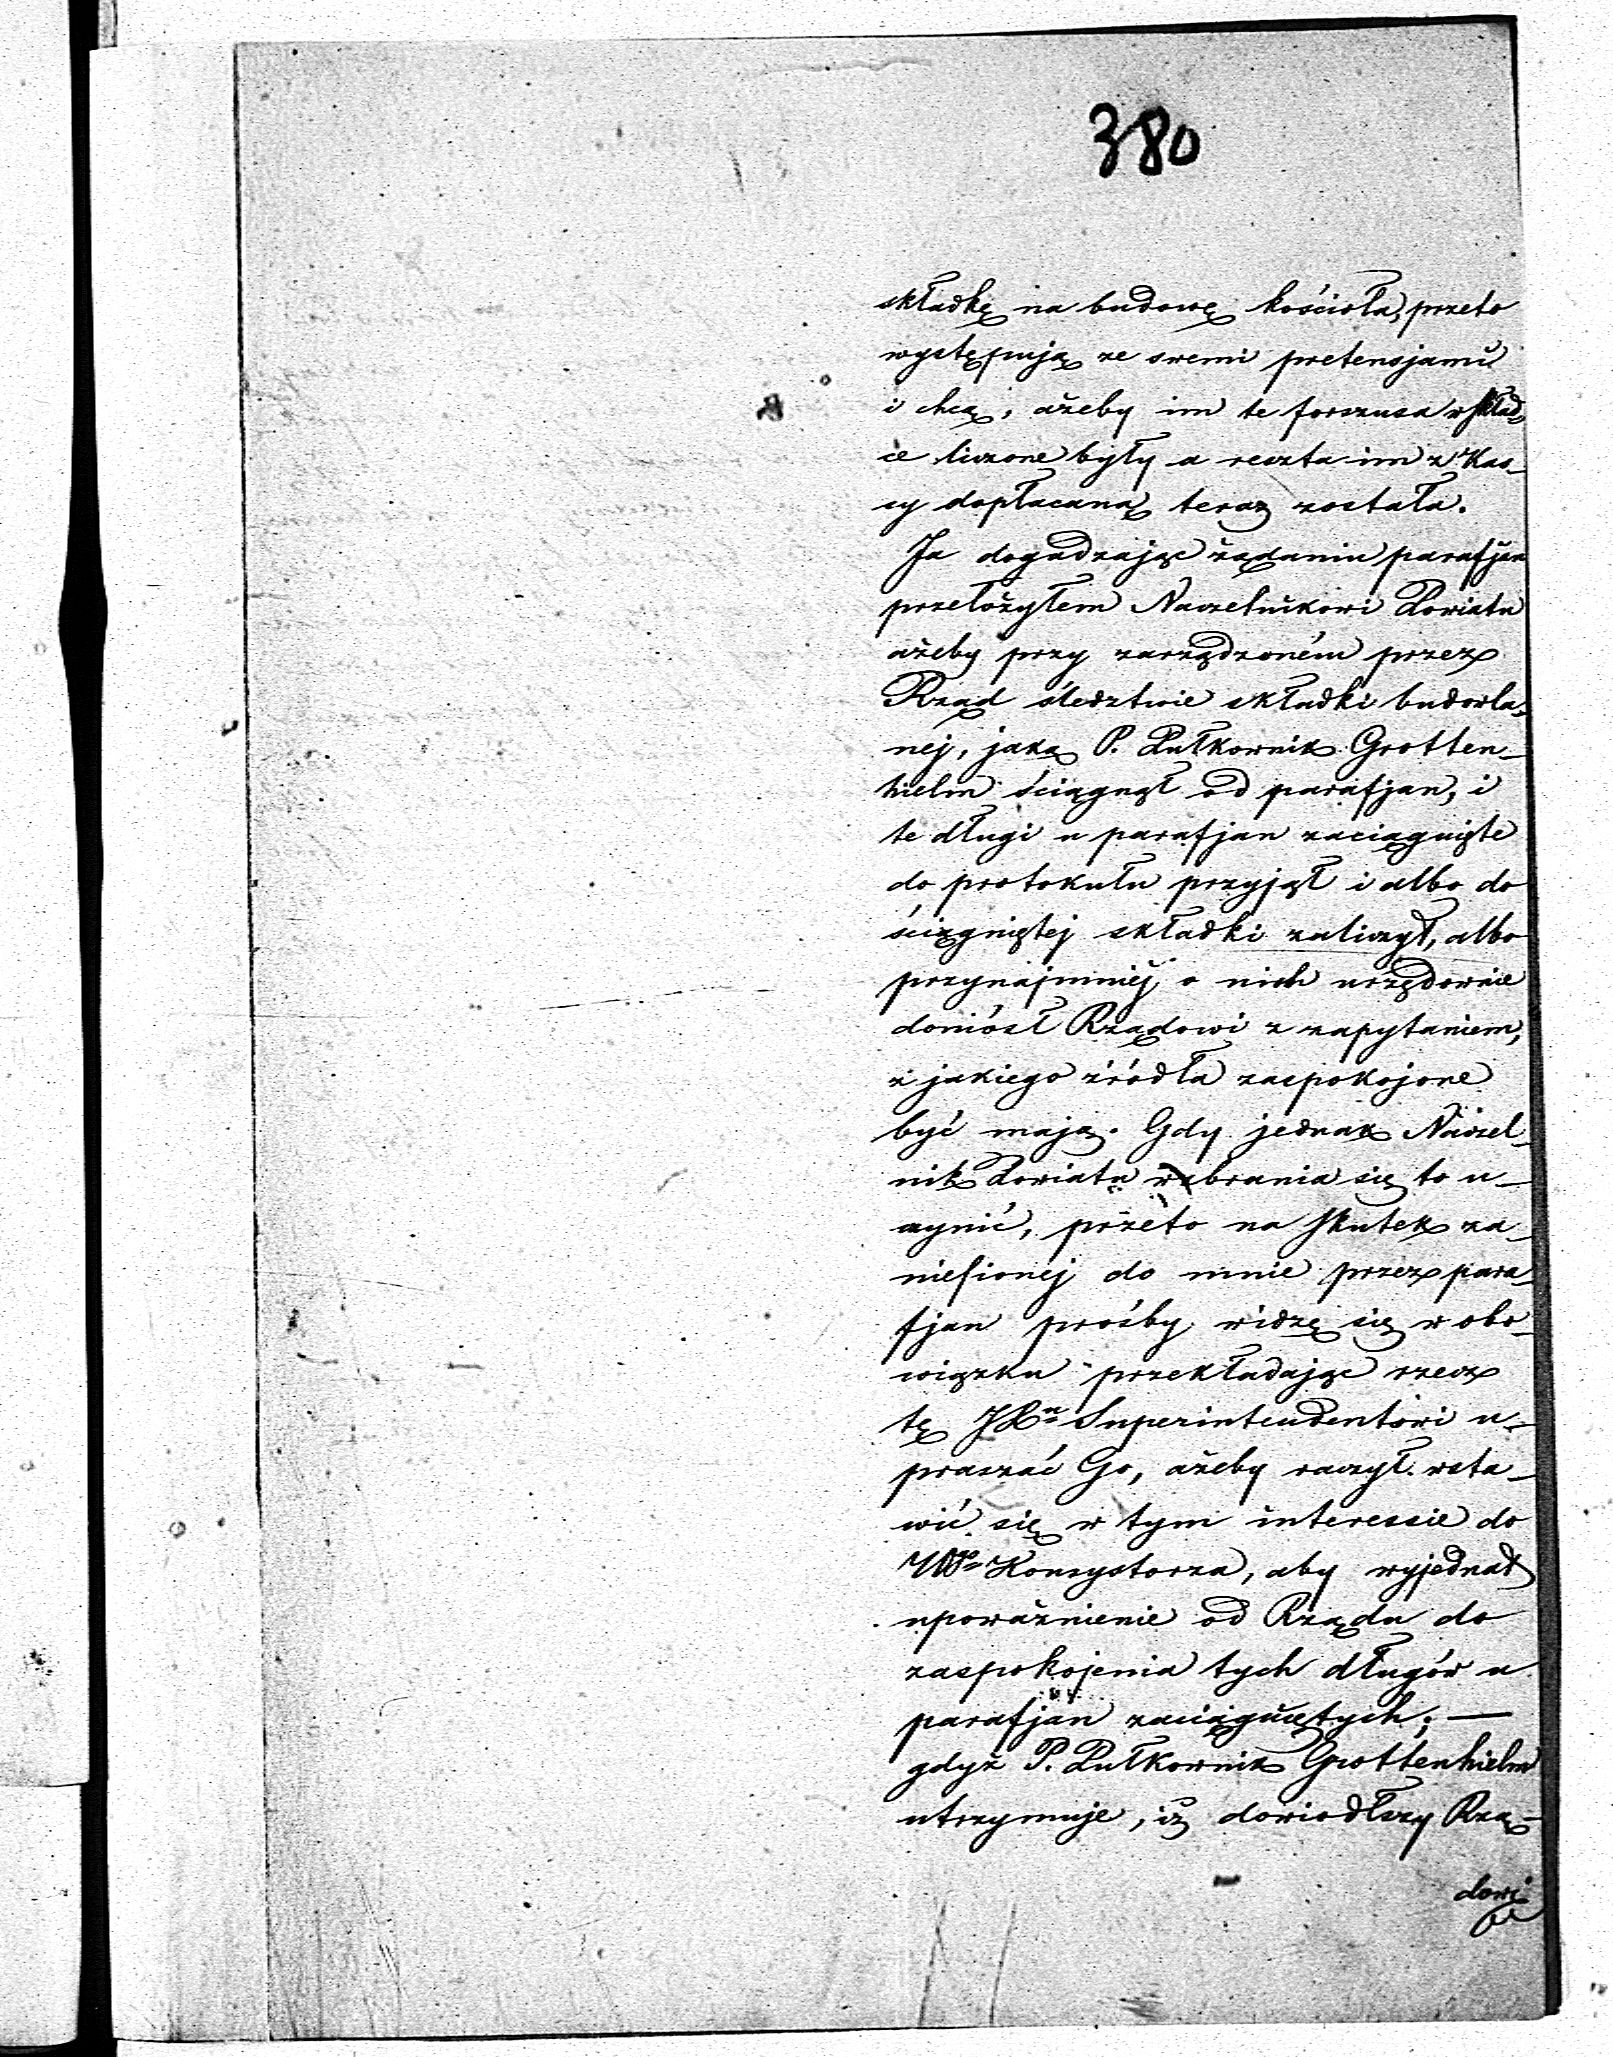 380
składkę na budowę kościoła, przeto
występują ze swemi pretensjami
i chcą, ażeby im te forszusa w skład-
ce liczone były a reszta im z Kas-
sy dopłacaną teraz została.
Ja dogadzając żądaniu parafjan
przełożyłem Naczelnikowi Powiatu
ażeby przy zarządzoném przez
Rząd śledztwie składki budowla-
néj, jaką P. Pułkownik Grotten-
hielm ściągnął od parafjan, i
te długi u parafjan zaciągnięte
do protokułu przyjął i albo do
ściągniętej składki zaliczył, albo
przynajmniéj o nich urzędownie
doniósł Rządowi z zapytaniem,
z jakiego źródła zaspokojone
być mają. Gdy jednak Naczel-
nik Powiatu wzbrania się to u-
czynić, przeto na skutek za-
niesionej do mnie przez para-
fjan prośby widzę się w obo-
wiązku przekładając rzecz
tę JX<sup>u</sup> Superintendentowi u-
praszać Go, ażeby raczył wsta-
wić się w tym interessie do
W<sup>go</sup> Konsystorza, aby wyjednał
upoważnienie od Rządu do
zaspokojenia tych długów u
parafjan zaciągniętych; —
gdyż P. Pułkownik Grottenhielm
utrzymuje, iż dowiódłszy Rzą-
dowi